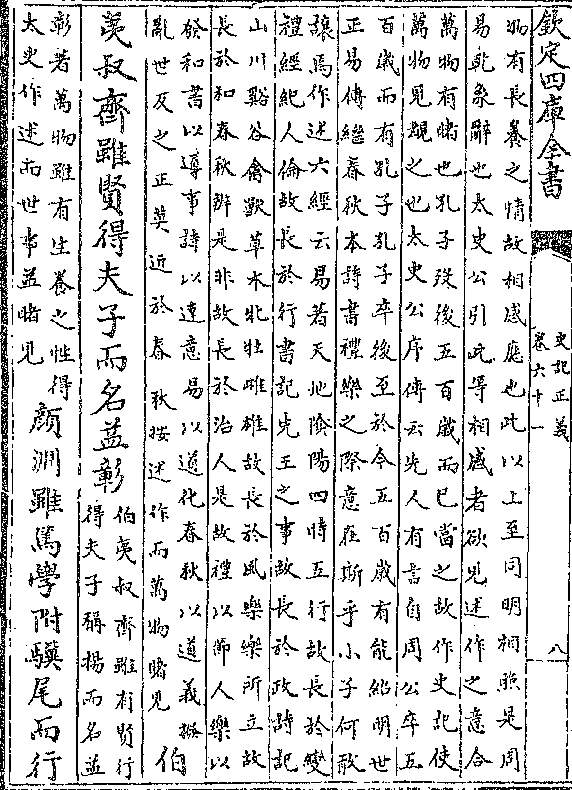 欽定四庫全書
史記正義
卷六十一
八
物有長養之情故相感應也此以上至同明相照是周
易乾象辭也太史公引此等相感者欲見述作之意令
萬物有睹也孔子歿後五百歲而已當之故作史記使
萬物見覩之也太史公序傳云先人有言自周公卒五
百歲而有孔子孔子卒後至於今五百歲有能紹明世
正易傳繼春秋本詩書禮樂之際意在斯乎小子何敢
讓焉作述六經云易著天地陰陽四時五行故長於變
禮經紀人倫故長於行書記先王之事故長於政詩記
山川谿谷禽獸草木牝牡雌雄故長於風樂樂所立故
長於和春秋辨是非故長於治人是故禮以節人樂以
發和書以導事詩以達意易以道化春秋以道義撥
亂世反之正莫近於春秋按述作而萬物睹見
伯
夷叔齊雖賢得夫子而名益彰
伯夷叔齊雖有賢行
得夫子稱揚而名益
彰著萬物雖有生養之性得
太史作述而世事益睹見
顏淵雖篤學附驥尾而行